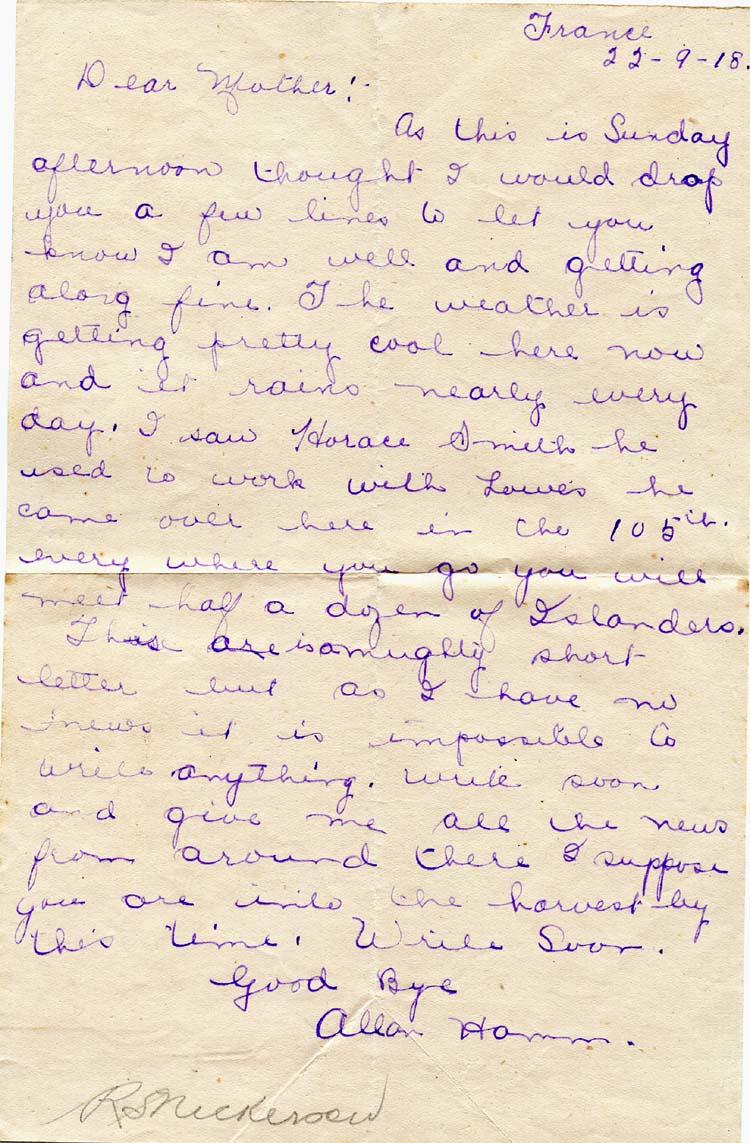 France
22-9-18.
Dear Mother!-
As this is Sunday
afternoon thought I would drop
you a few lines to let you
know I am well and getting
along fine. The weather is
getting pretty cool here now
and it rains nearly every
day. I saw Horace Smith he
used to work with Lowes he
came over here in the 105th.
every where you go you will
meet half a dozen of Islanders.
This is a mughty short
letter but as I have no
news it is impossible to
write anything. write soon
and give me all the news
from around there I suppose
you are into the harvest by
this time. Write Soon.
Good Bye
Allan Hamm.
RS Nickerson